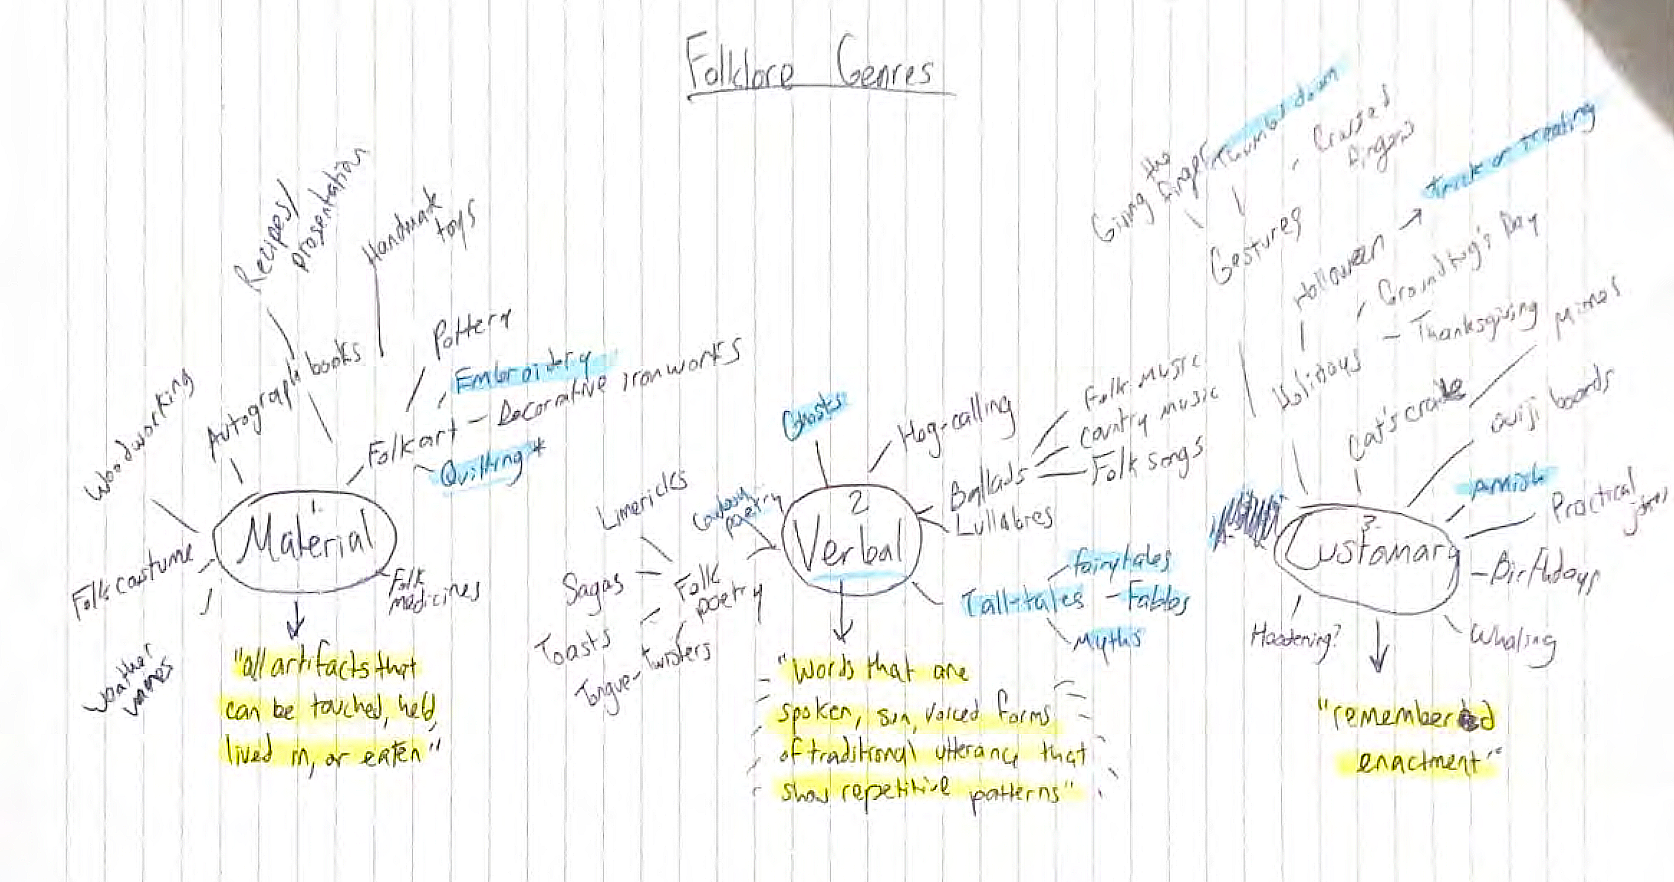 Folklore Genres
Recipes/
presentation
Handmade
toys
Woodworking
Autograph books
Pottery
Embroidery
Folk art - Decorative ironworks
Quilting *
1.
Material
Folk costume
Folk
medicines
weather
vanes
"all artifacts that
can be touched, held,
lived in, or eaten"
Ghosts
Hog-calling
Folk music
Country music
Folk songs
Ballads
Lullabies
Limericks
Cowboy
poetry
2
Verbal
Sagas
Folk
poetry
Toasts
Tongue-Twisters
fairytales
Tall-tales - Fables
Myths
"Words that are
spoken, sun, voiced forms
of traditional utterance that
show repetitive patterns"
Giving the
finger
Thumbs down
Crossed
fingers
Gestures
Trick or treating
Halloween
Groundhog's Day
- Thanksgiving
Holidays
mimes
Cat's cradle
ouiji boards
Amish
Practical
jokes
3.
Customary
- Birthdays
Hoodening?
Whaling
"remembered
enactment"